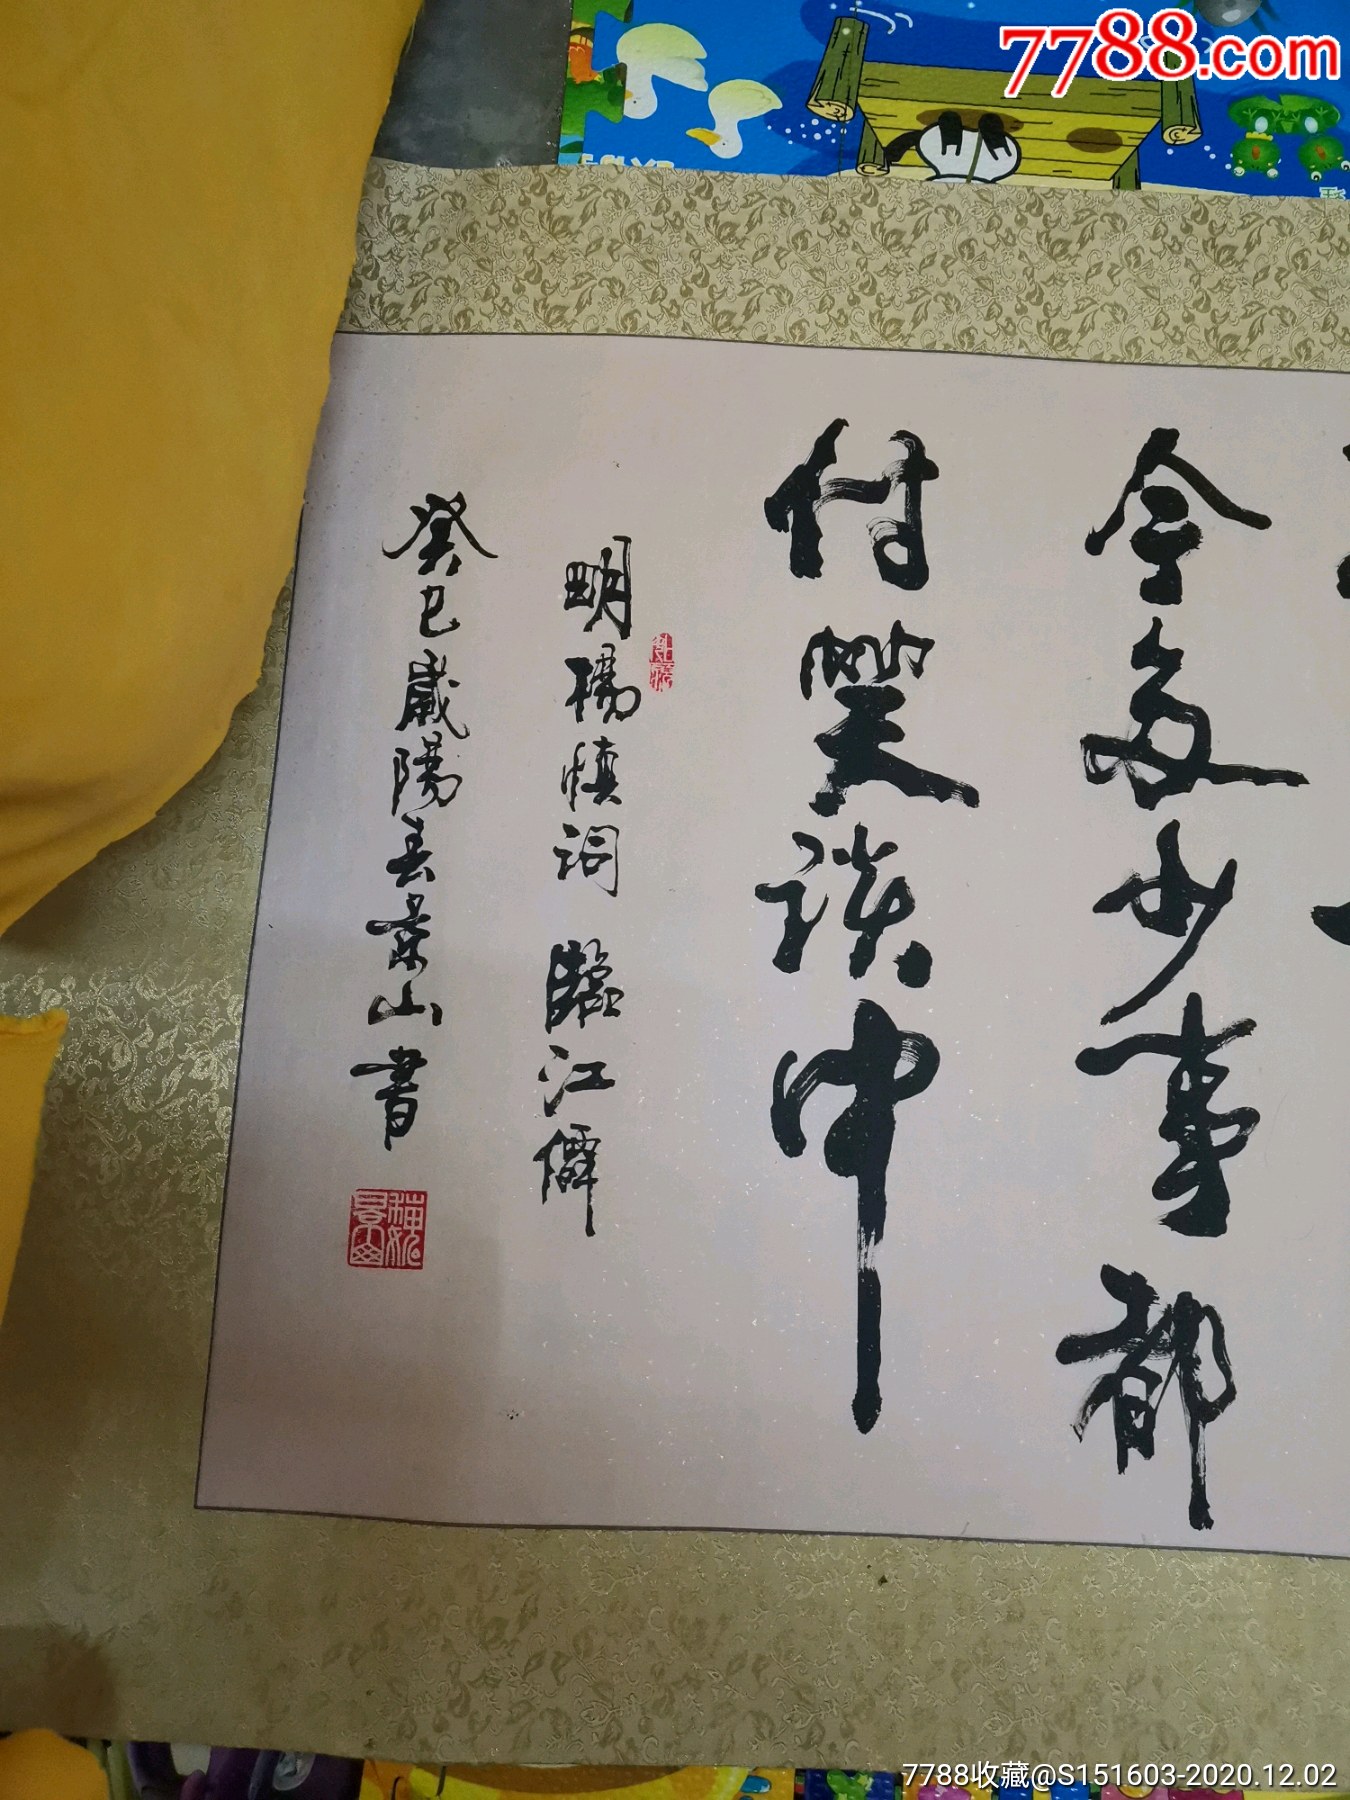 7788.com
今多少事都
付笑談中
明楊慎詞 臨江僊
癸巳歲陽春景山書
7788收藏@S151603-2020.12.02